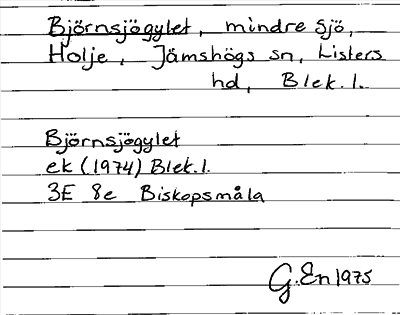 Björnsjögylet, mindre sjö,
Holje, Jämshögs sn, Listers
hd, Blek. l.
Björnsjögylet
ek (1974) Blek. l.
3E 8e Biskopsmåla
G. En 1975